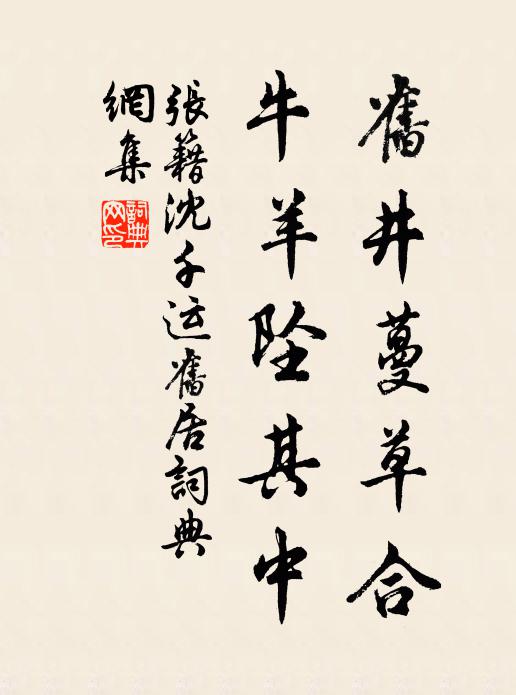 舊井蔓草合
牛羊坠其中
張籍沈千运舊居詞典
網集
詞典
网印